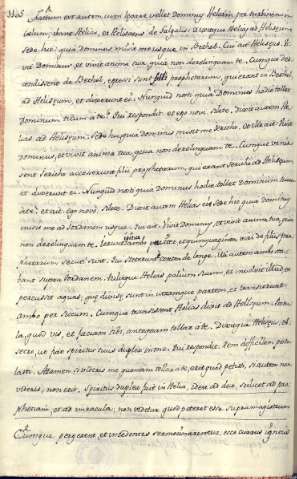 Factum est autem cum levare vellet Dominus Heliam per turbinem in
Cælum, ibant Helias, et Heliseus de Galgalis. Dixitque Helias ad Heliseum
sede hic: quia Dominus misit me usque in Bethel. Cui ait Heliseus. Vi-
vit Dominus, et vivit anima tua, quia non derelinquam te. Cumque des-
cendissent Bethel, egressi sunt filii prophetarum, qui erant in Bethel
ad Heliseum, et dixerunt ei: Nunquid nosti quia Dominus hodie tollet
Dominum tuum a te? Qui respondit: et ego novi, silete. Dixit autem He-
lias ad Heliseum. Sede hic quia Dominus misit me Jericho. et ille ait. Vivit
Dominus, et vivit anima tua, quia non derelinquam te. Cumque venis-
sent Jericho accesserunt filii prophetarum, qui erant Jericho ad Heliseum,
et dixerunt ei. Nunquid nosti quia Dominus hodie tollet Dominum tuum
a te? et ait: ego novi, silete. Dixit autem Helias sede hic quia Dominus
misit me ad Jordanem usque. Qui ait. Vivit Dominus, et vivit anima tua, quia
non derelinquam te. Ierunt ambo pariter, et quinquaginta viri de filiis pro-
phetarum secuti sunt. Qui steterunt contra de longe. Illi autem ambo sta-
bant super Jordanem. Tulitque Helias pallium suum, et involvit illud, et
percussit aquas, quæ divisæ sunt in utramque partem, et transierunt
ambo per siccum. Cumque transissent Helias dixit ad Heliseum. Postu-
la, quod vis, et faciam tibi, antequam tollar a te. Dixitque Heliseus, ob-
secro, ut fiat spiritus tuus duplex in me. Qui respondit. Rem difficilem postu-
lasti. Attamen si videris me quando tollar a te, erit quod petisti, si autem non
videris, non erit. Spiritus duplex fuit in Helia, idest ad duo, scilicet ad pro-
phetiam, et ad miracula, non videtur quod peteret esse supra magistrum.
Cumque pergerent, et incedentes sermocinarentur, ecce currus igneus